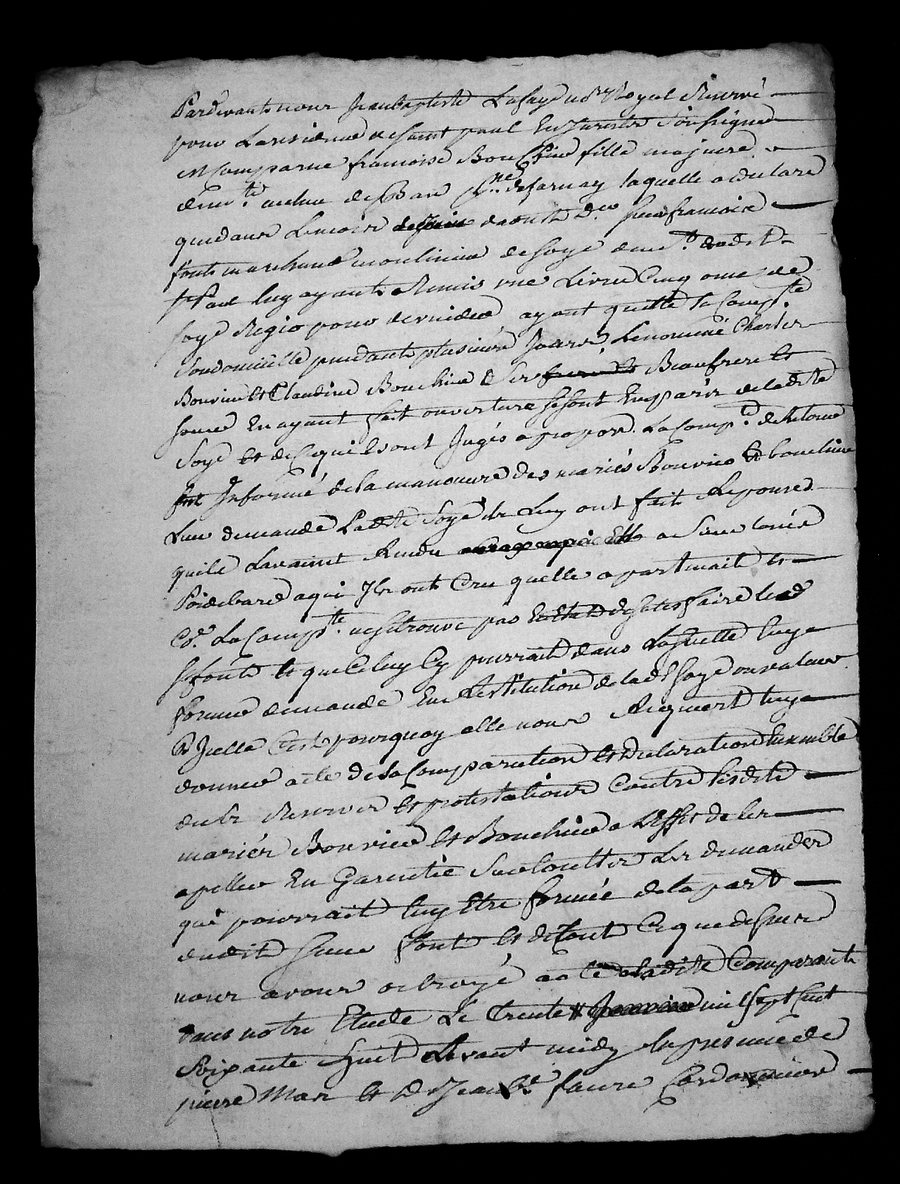 Pardevant nous Jean baptiste Lafay nore Royal Reservé
pour La residence de saint paul En Jarest soussigné
a Comparue francoise Bouchine fille majeure
dem.te de farnay laquelle a declaré
que dans Le mois de Juin daoust d.er sieur francois
font marchand moulinier de soye dem.t audit
st Paul luy ayant Remis une Livre Cinq onces de
soye pour devider ayant quitté la Comp.te
Son domicille pendant plusieurs Jours Le nommé Charles
Bouvier et Claudine Bouchine Ses frere et Beaufrere et
soeur En ayant fait ouverture se sont Emparés de ladite
Soye et de Ce quils ont Jugés a propos. La Comp.te de Retour
fut Informé de la manoeuvre des mariés Bouvier et bouchine
Leur demanda Ladte Soye ils Luy ont fait Reponce
quils Lavaint Rendu a Sieur
Poidebard a qui Ils ont Cru quelle apartenait et
La Comp.te ne se trouve pas faire led
sr font et que Celuy Cy pourrait dans La suitte luy
former demande En Restitution de lad.e soye ou valeur
d'Icelle C'est pourquoy elle nous Requiert luy
donner acte de sa Comparution et declaration Ensemble
de ses Reserves et protestations Contre lesdits
mariés Bouvier et Bouchine a Leffet de les
apeller En Garentie Sur touttes Les demandes
qui pourrait luy Etre formée de la part
dudit sieur font et de tout Ce que dessus
nous avons octroyé acte a ladite Comparante
dans notre Etude Le trente Janvier mil sept cent
Soixante huit avant midy En presence de
pierre Mas et de Jean faure Cordonnier